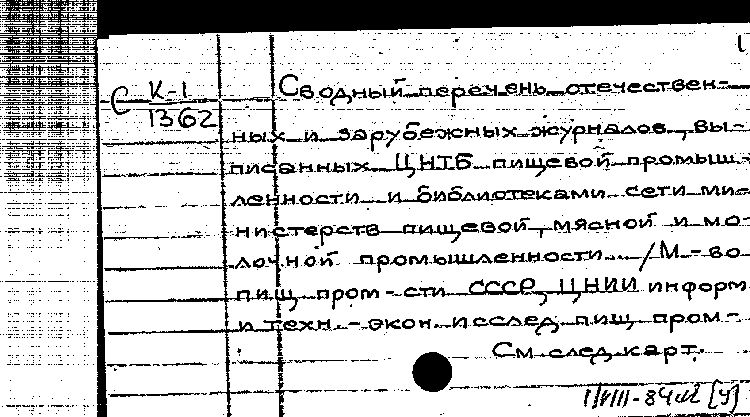 С К-1
1362
Сводный перечень отечествен-
ных и зарубежных журналов, вы-
писанных ЦНТБ пищевой промыш-
ленности и библиотеками сети ми-
нистерств пищевой, мясной и мо-
лочной промышленности... /М-во
пищ. пром-сти СССР, ЦНИИ информ.
и техн.-экон. исслед. пищ. пром-
См. след. карт.